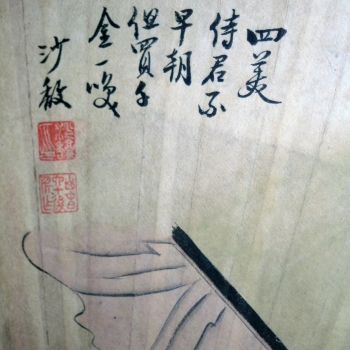 四美
侍君不
早朝
但買千
金一笑
沙馥